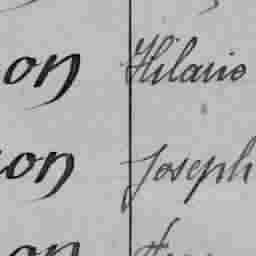 on Hilario
on Joseph
on